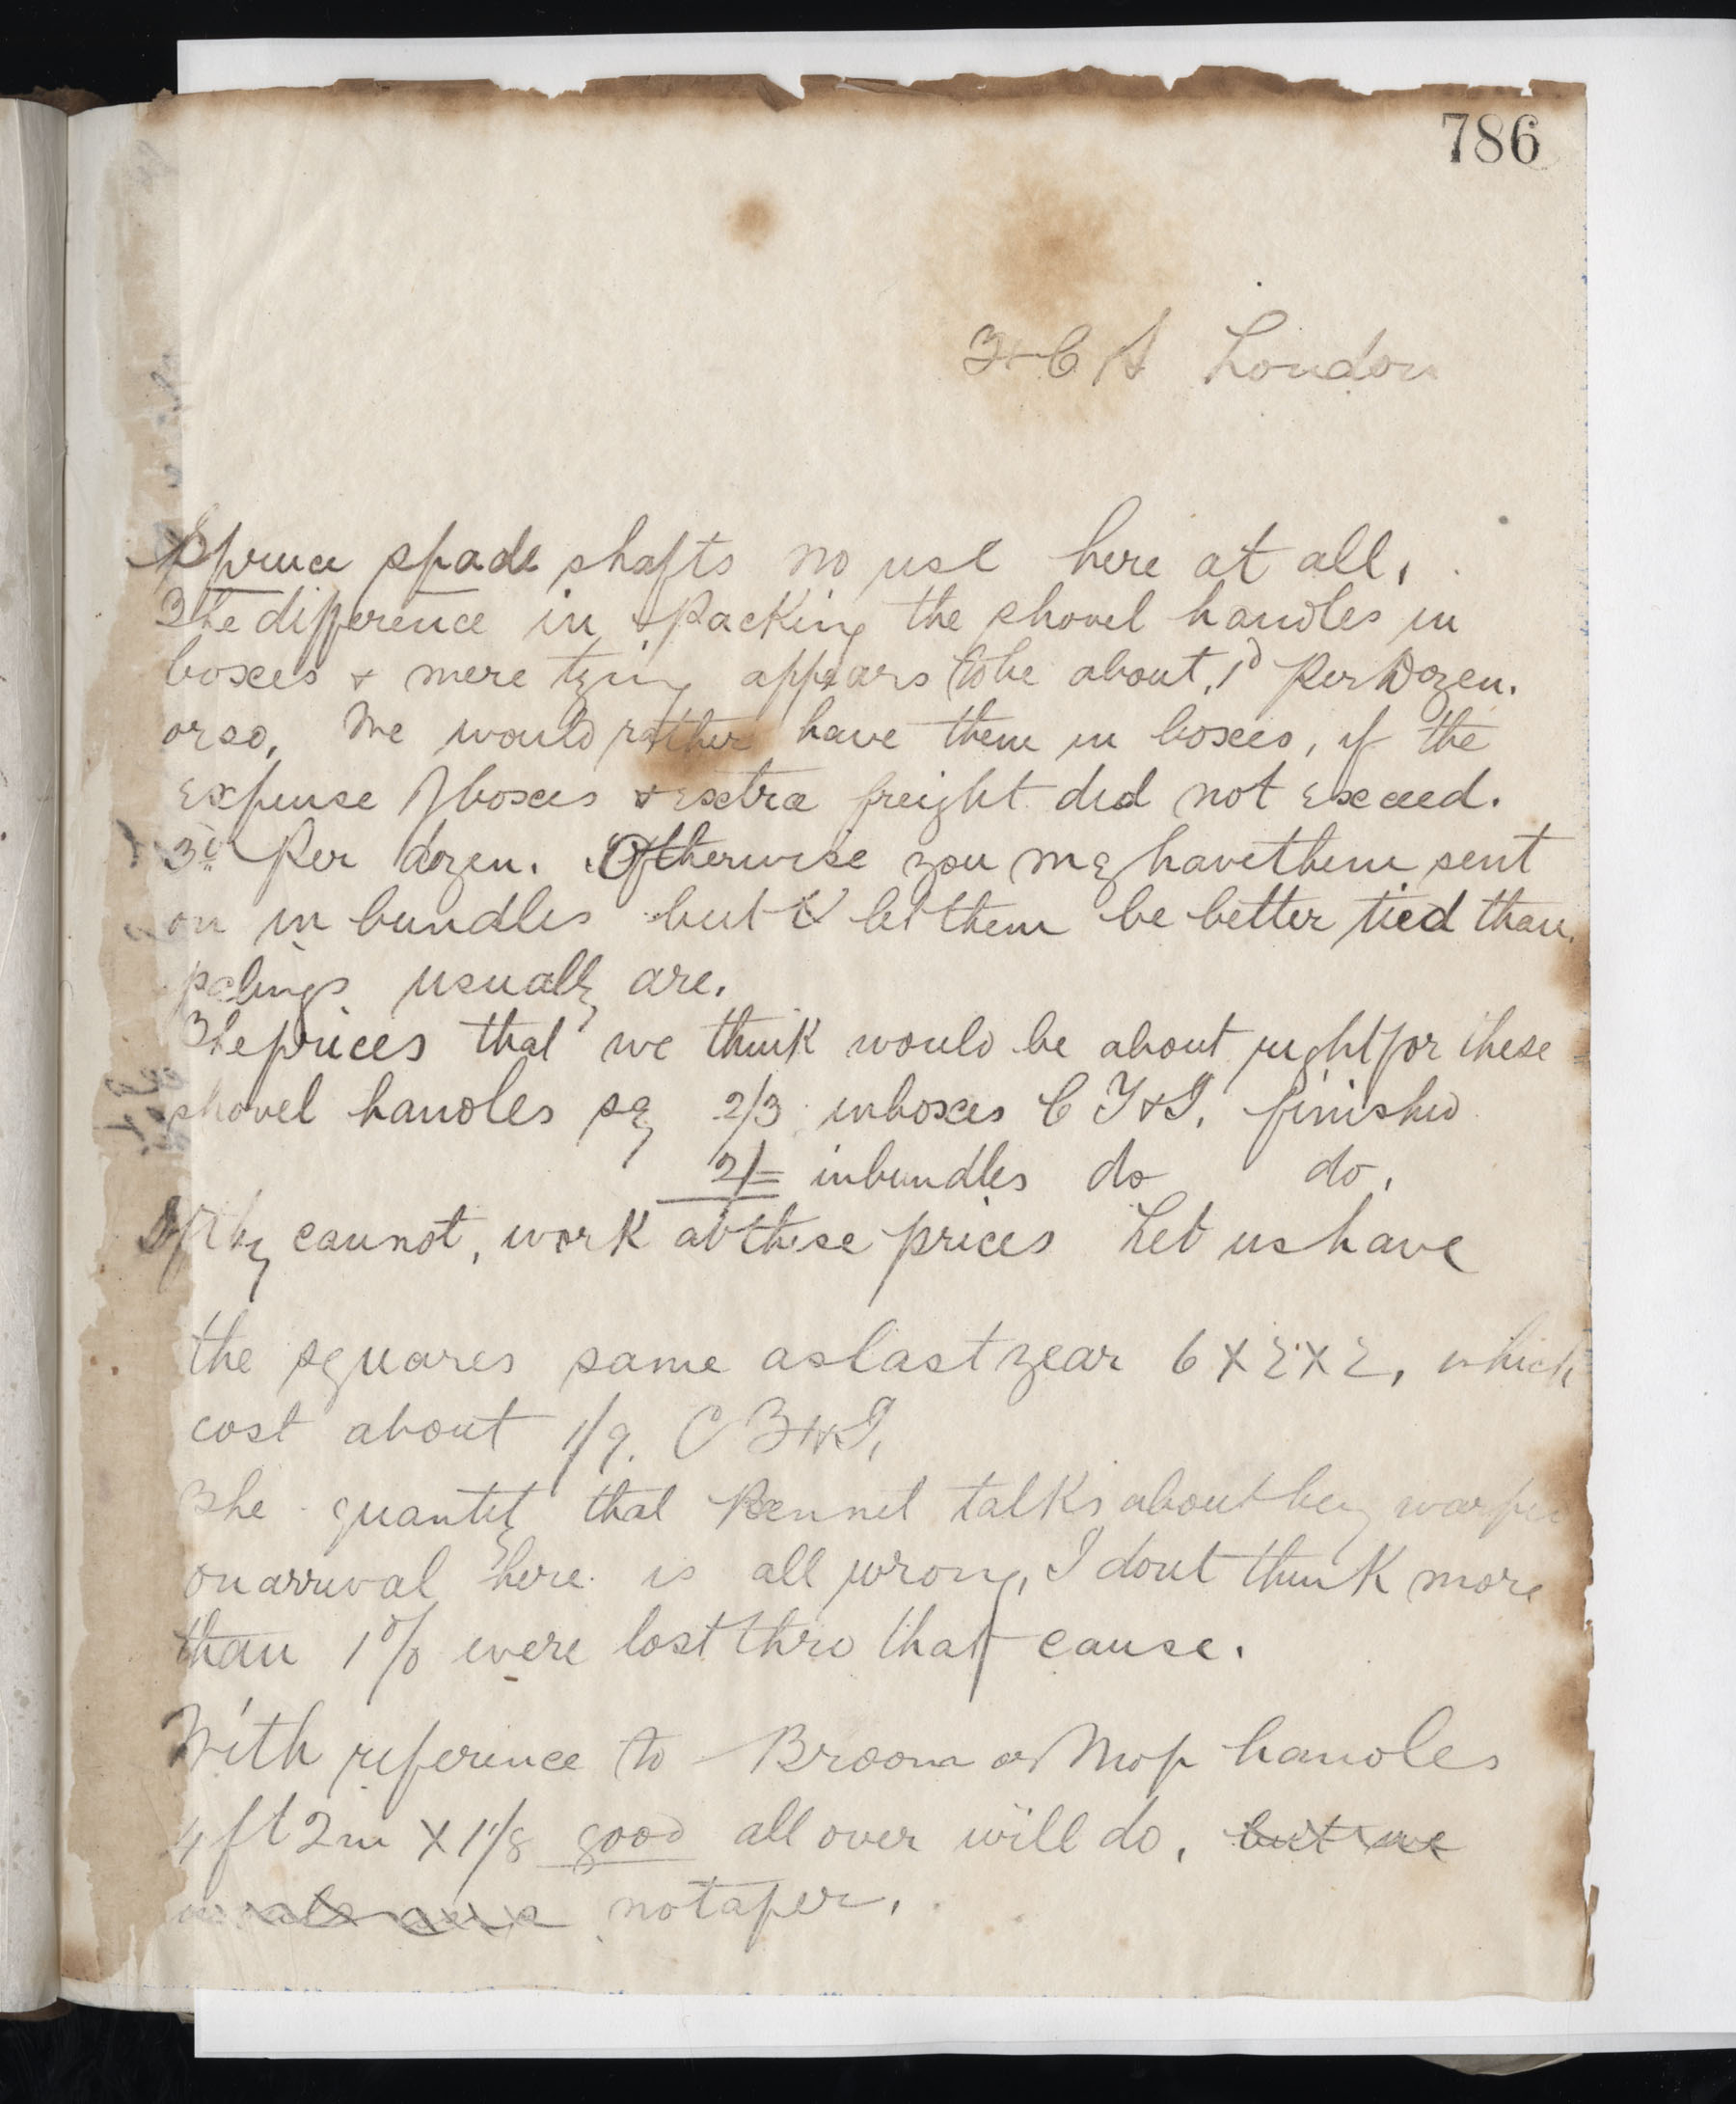 786
London
Spruce spade shafts no use here at all,
The difference in packing the shovel handles in
boxes & mere tying appears to be about, 1d Per Dozen.
or so, We would rather have them in boxes, if the
expense of boxes & extra freight did not exceed.
3d Per dozen. Otherwise you may have them sent
on in bundles but let them be better tied than
palings usually are.
The prices that we think would be about right for these
shovel handles say 2/3 in boxes C I & F. finished
2/= in bundles do do.
If they cannot, work at these prices Let us have
the squares same as last year 6 X 2 X 2, which
cost about 1/9.
The quantity that talks about being warped
on arrival here is all wrong, I dont think more
than 1% were lost thro that cause.
With reference to Broom or Mop handles
4 ft 2 in X 1 1/8 good all over will do, but we
no taper.